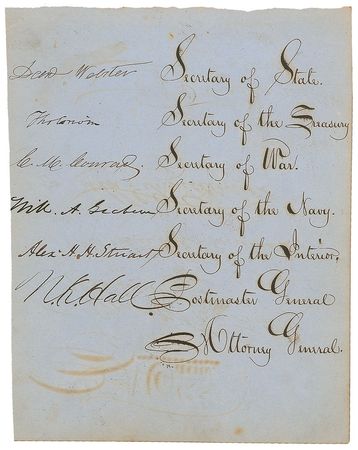 Danl Webster Secretary of State.
Th. Corwin Secretary of the Treasury
C. M. Conrad. Secretary of War.
Will A. Graham Secretary of the Navy.
Alex. H. H. Stuart Secretary of the Interior.
N. K. Hall Postmaster General
Attorney General.